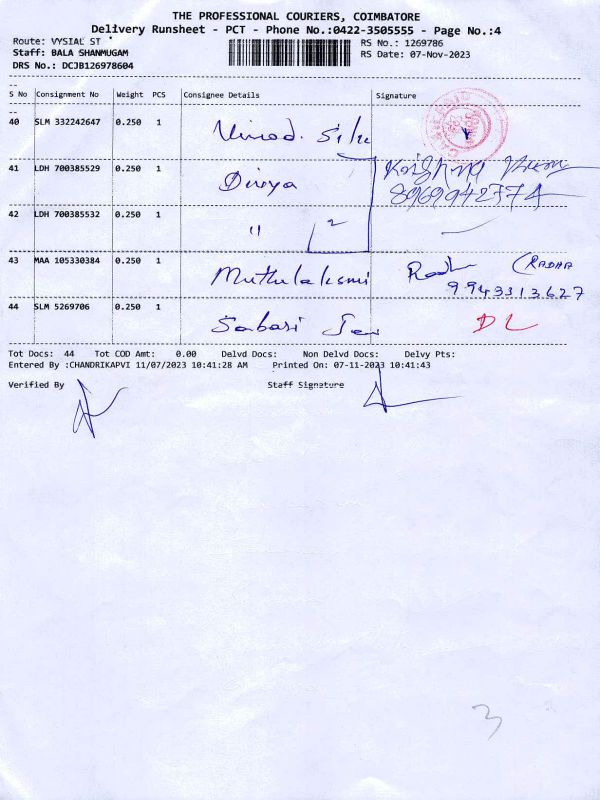 THE PROFESSIONAL COURIERS, COIMBATORE
Delivery Runsheet - PCT - Phone No.:0422-3505555 - Page No.:4
Route: VYSIAL ST
Staff: BALA SHANMUGAM
DRS No.: DCJB126978604
RS No.: 1269786
RS Date: 07-Nov-2023
S No Consignment No Weight PCS Consignee Details Signature
40 SLM 332242647 0.250 1 Vinod. Silk
41 LDH 700385529 0.250 1 Divya
8969942374
42 LDH 700385532 0.250 1 " 2
43 MAA 105330384 0.250 1 Muthulaksmi Radh (RADHA
9943313627
44 SLM 5269706 0.250 1 Sabari DL
Tot Docs: 44 Tot COD Amt: 0.00 Delvd Docs: Non Delvd Docs: Delvy Pts:
Entered By :CHANDRIKAPVI 11/07/2023 10:41:28 AM Printed On: 07-11-2023 10:41:43
Verified By Staff Signature
3